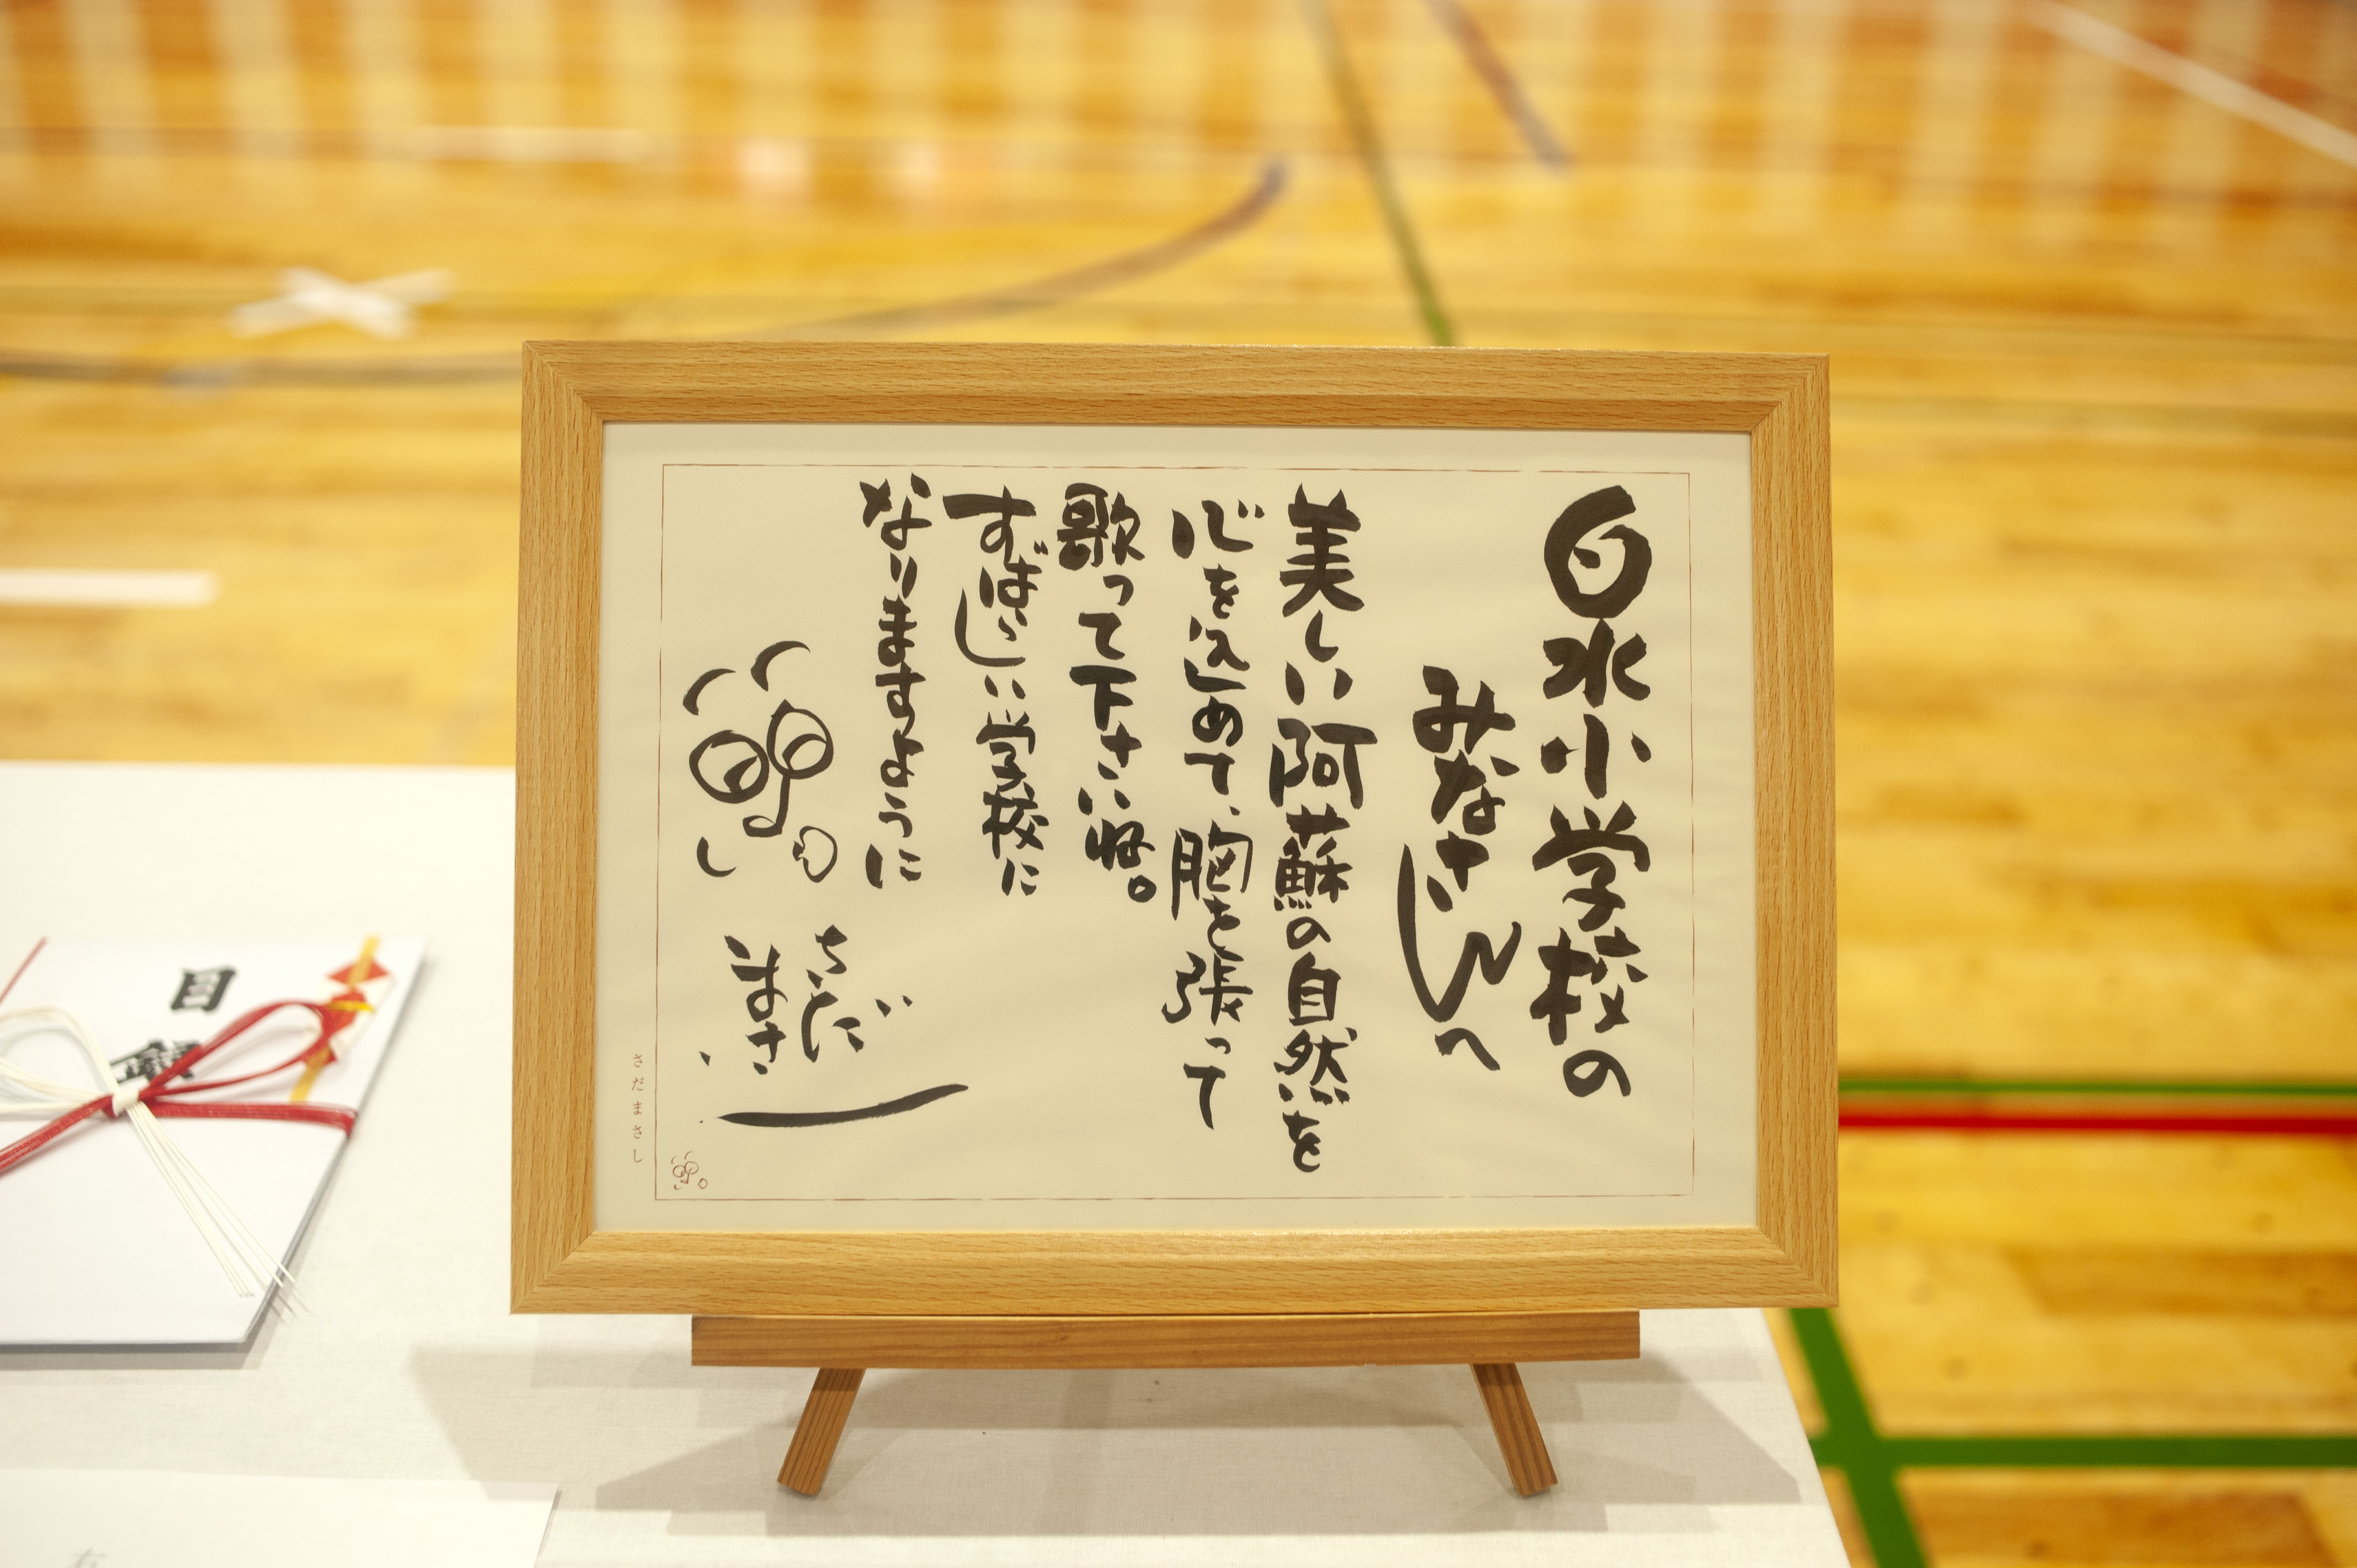 白水小学校の
みなさんへ
美しい阿蘇の自然を
心を込めて、胸を張って
歌って下さいね。
すばらしい学校に
なりますように
さだ
まさし
さだまさし
目録